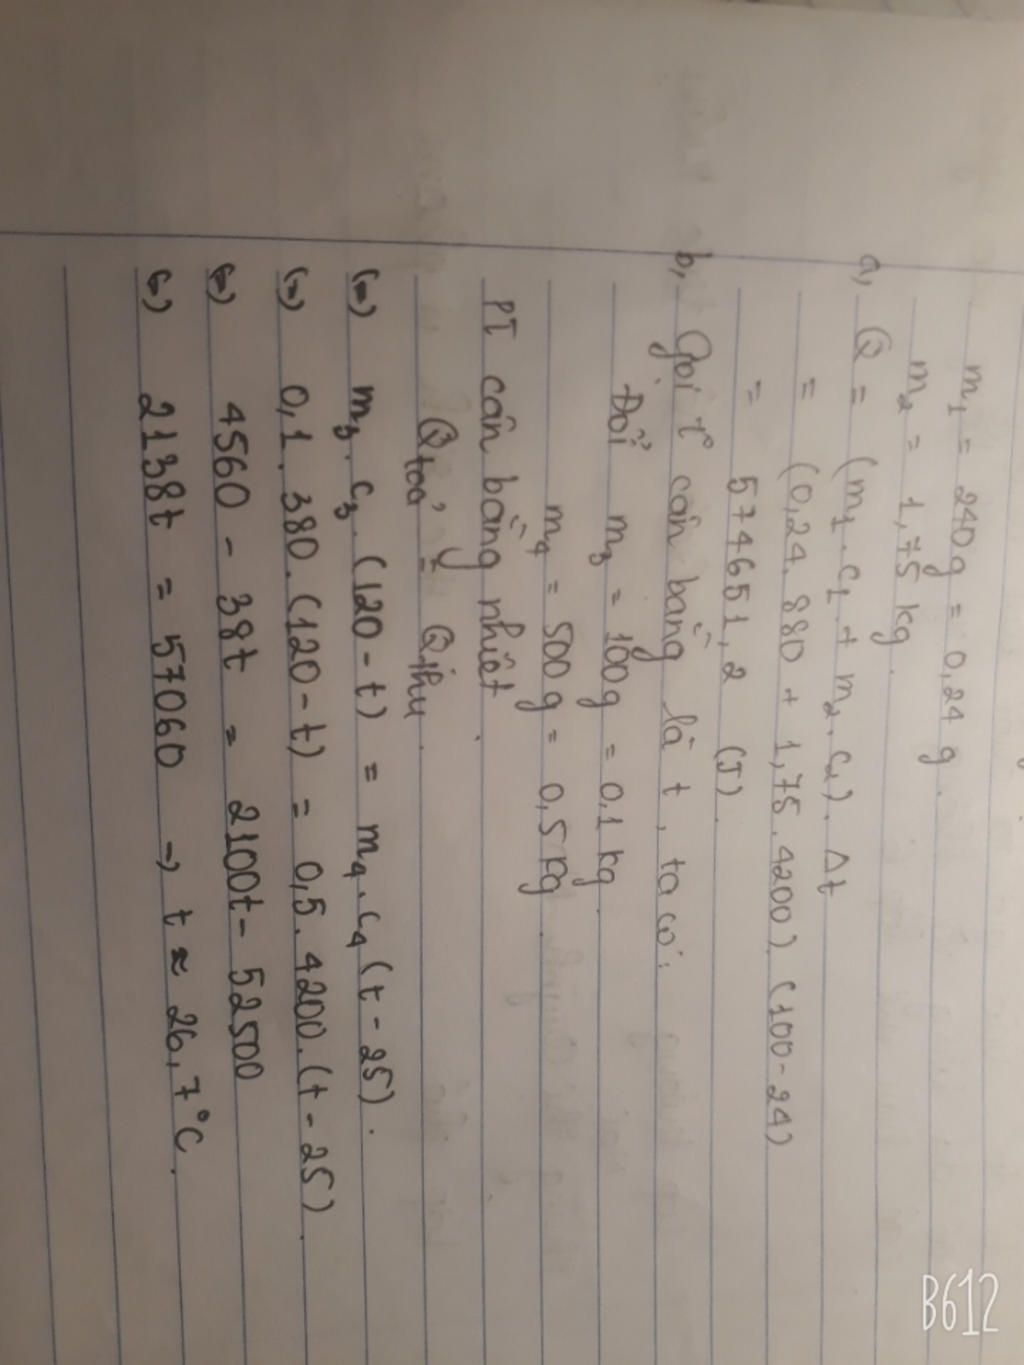 m₁ = 240g = 0,24 g.
m₂ = 1,75 kg.
a, Q = (m₁.c₁ + m₂.c₂). Δt
= (0,24.880 + 1,75.4200).(100-24)
= 574651,2 (J).
b, Gọi t° cân bằng là t, ta có:
Đổi m₃ = 100g = 0,1 kg.
m₄ = 500g = 0,5 kg.
PT cân bằng nhiệt.
Qtoả = Qthu.
(=) m₃.c₃.(120-t) = m₄.c₄(t-25).
(=) 0,1.380.(120-t) = 0,5.4200.(t-25).
(=) 4560 - 38t = 2100t - 52500
(=) 2138t = 57060 → t ≈ 26,7°C.
B612